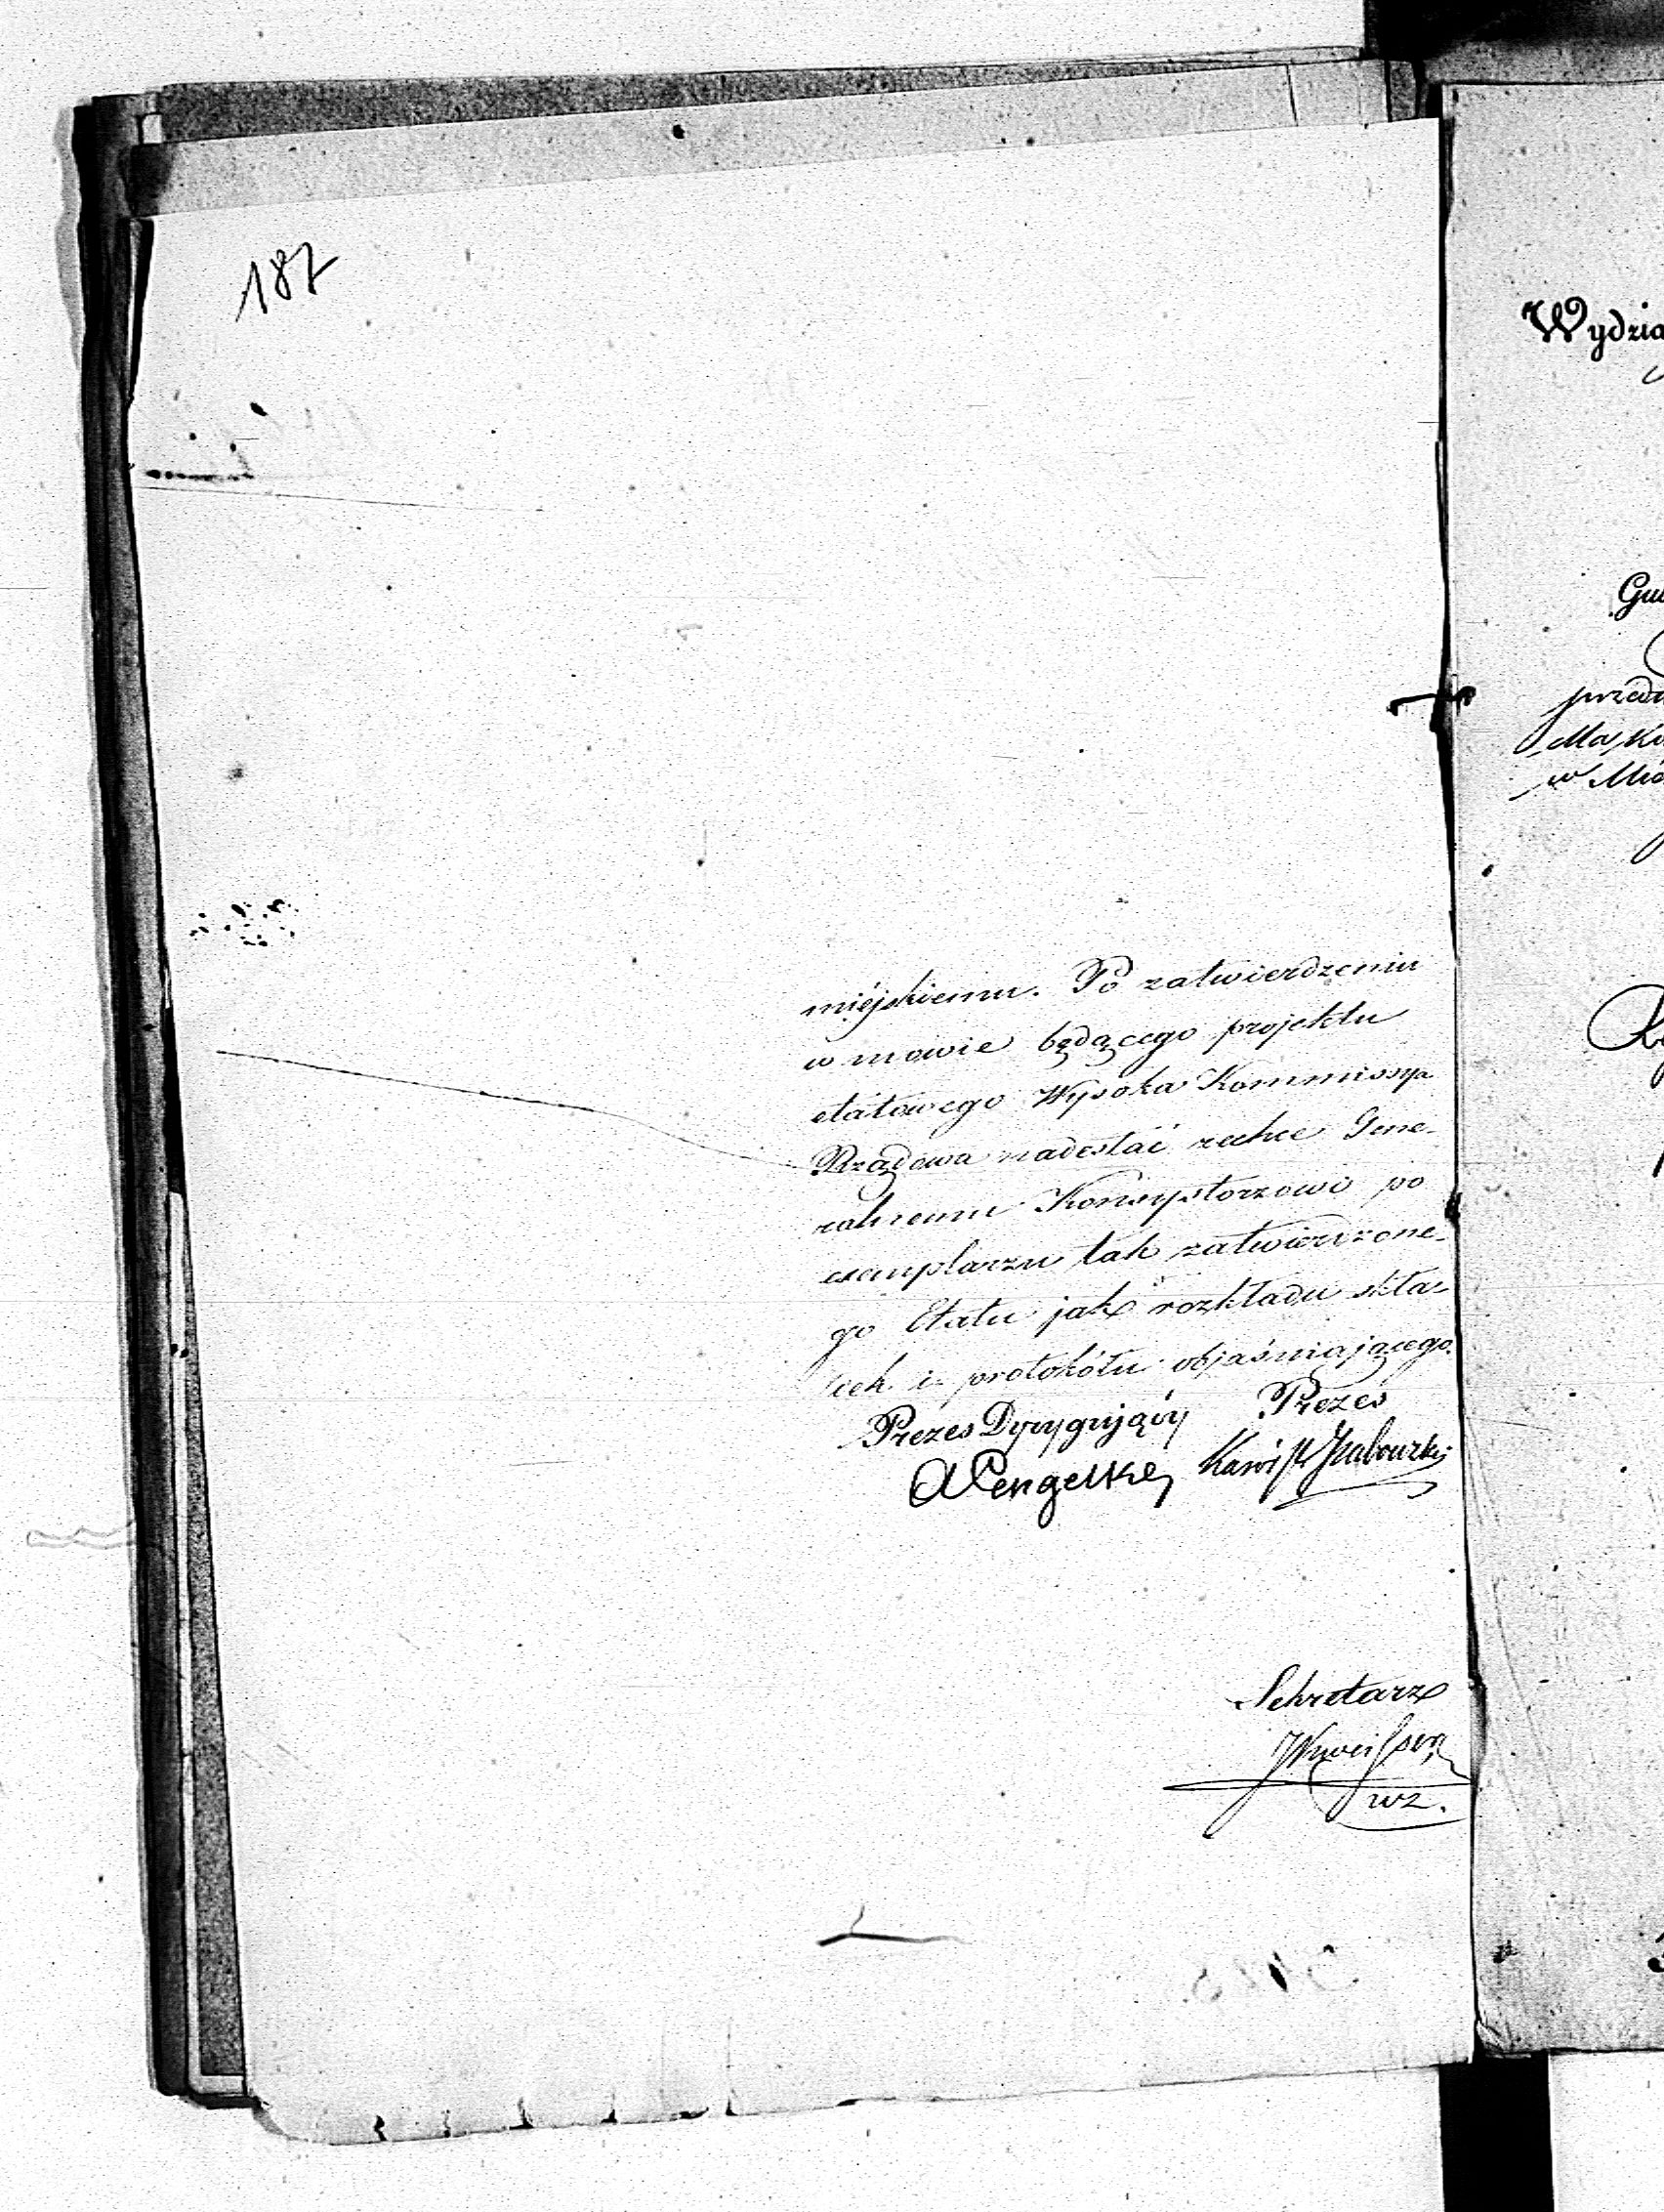 187
miéjskiemu. Po zatwierdzeniu
w mowie będącego projektu
etatowego Wysoka Kommissya
Rządowa nadesłać zechce Gene-
ralnemu Konsystorzowi po
exemplarzu tak zatwierdzone-
go Etatu jako rozkładu skła-
dek i protokółu objaśniającego.
Prezes Dyrygujący Prezes
Sekretarz
wz.
Wydzia
Gub
przedm
w